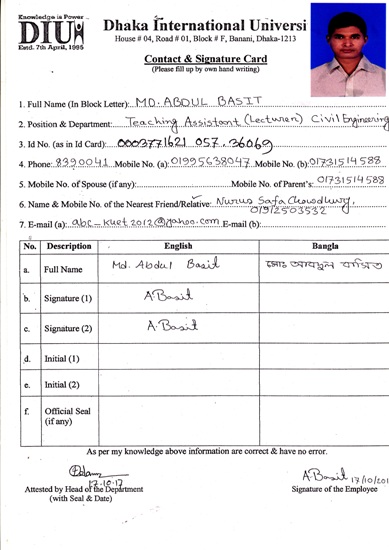 Knowledge is Power...
DIU
Estd. 7th April, 1995
Dhaka International Universi
House # 04, Road # 01, Block # F, Banani, Dhaka-1213
Contact & Signature Card
(Please fill up by own hand writing)
1. Full Name (In Block Letter): MD. ABDUL BASIT
2. Position & Department: Teaching Assistant (Lecturer) Civil Engineering
3. Id No. (as in Id Card): 0003771621 057, 36069
4. Phone: 8390041 Mobile No. (a): 01995638047 Mobile No. (b): 01731514588
5. Mobile No. of Spouse (if any): Mobile No. of Parent's: 01731514588
6. Name & Mobile No. of the Nearest Friend/Relative: Nurus Safa Chowdhury,
01912503532
7. E-mail (a): abc_kuet2012@yahoo.com E-mail (b):
No. Description English Bangla
a. Full Name Md. Abdul Basit মোঃ আবদুল বাসিত
b. Signature (1) A.Basit
c. Signature (2) A.Basit
d. Initial (1)
e. Initial (2)
f. Official Seal
(if any)
As per my knowledge above information are correct & have no error.
17.10.17
A.Basit 17/10/201
Attested by Head of the Department Signature of the Employee
(with Seal & Date)